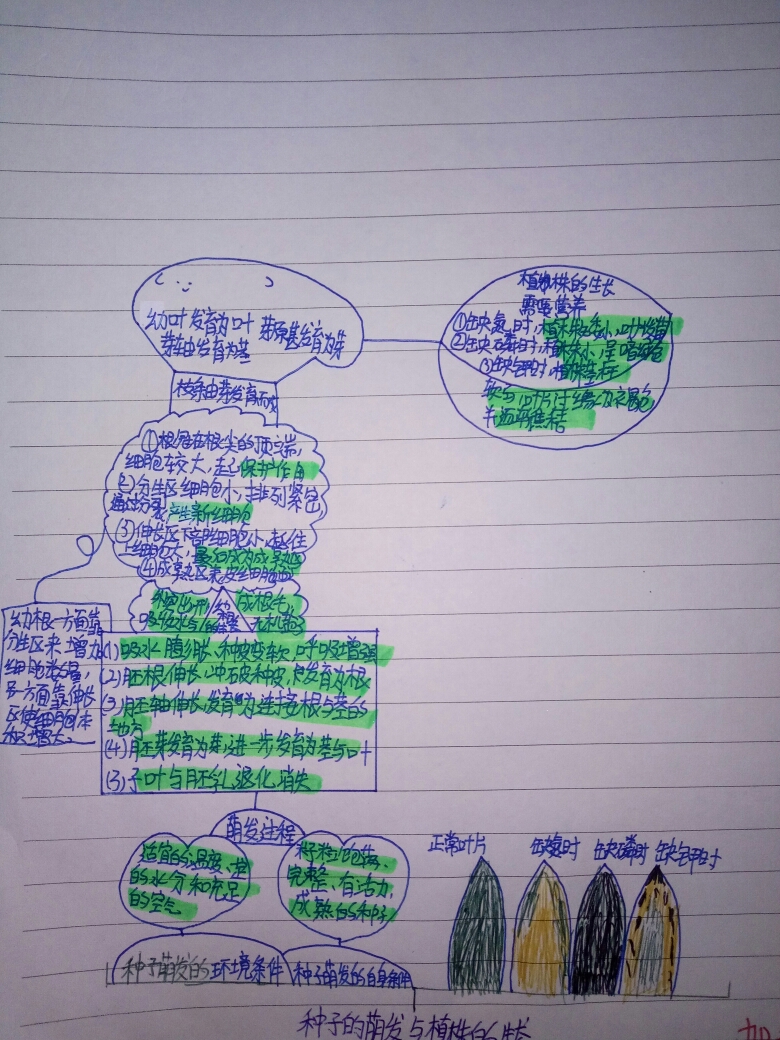 幼叶发育为叶 芽原基发育为芽
芽轴发育为茎
枝条由芽发育而成
植株的生长
需要营养
①缺氮时,植株矮小,叶片发黄
②缺磷时,植株矮小,呈暗绿色
③缺钾时,植株茎秆
软弱,叶片边缘及尖褐色,
并逐渐焦枯
①根冠在根尖的顶端,
细胞较大,起保护作用
②分生区细胞小,排列紧密
通过分裂产生新细胞
③伸长区下部细胞小,越往
上细胞越大,最后成为成熟区
④成熟区表皮细胞
外突出形成根毛,
吸收水分 无机盐
幼根一方面靠
分生区来增加
细胞数量,
另一方面靠伸长
区使细胞体
积增大。
(1)吸水膨胀、种皮变软、呼吸增强
(2)胚根伸长,冲破种皮,发育为根
(3)胚轴伸长发育为连接根与茎的
地方
(4)胚芽发育为芽,进一步发育为茎与叶
(5)子叶与胚乳退化消失
萌发过程
适宜的温度、一定
的水分和充足
的空气
籽粒饱满、
完整、有活力,
成熟的种子
正常叶片 缺氮时 缺磷时 缺钾时
种子萌发的环境条件
种子萌发的自身条件
种子的萌发与植株的生长